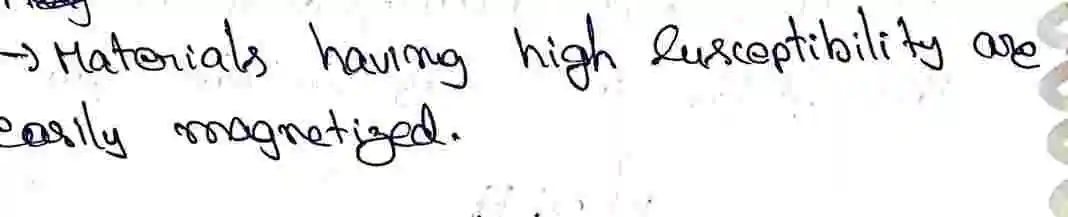 → Materials having high susceptibility are
easily magnetized.